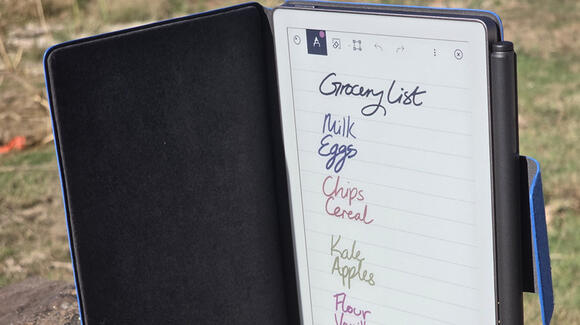 A
Grocery List
Milk
Eggs
Chips
Cereal
Kale
Apples
Flour